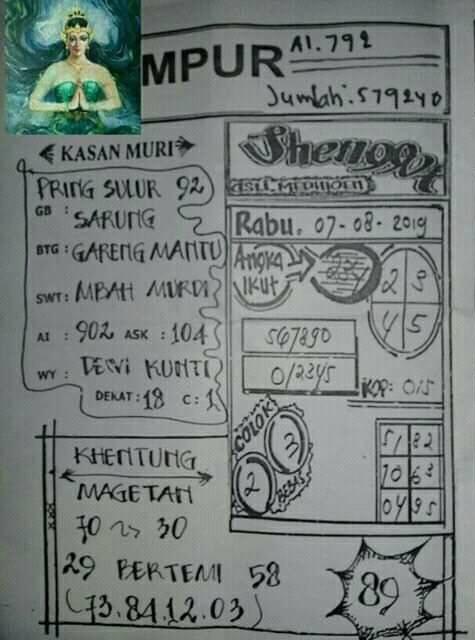 MPUR
AI.792
Jumlah: 579240
KASAN MURI
PRING SULUR 92
GB : SARUNG
BTG : GARENG MANTU
SWT : MBAH MURDI
AI : 902 ASK : 104
WY : DEWI KUNTI
DEKAT : 18 C : 1
ASLI MADIUN
Rabu. 07-08-2019
Angka
IKUT
2 3
4 5
567890
012345
KOP: 0/5
COLOK
3
2
BEBAS
51 82
70 63
04 95
KHENTUNG
MAGETAN
70 30
29 BERTEMU 58
(73.84.12.03)
89